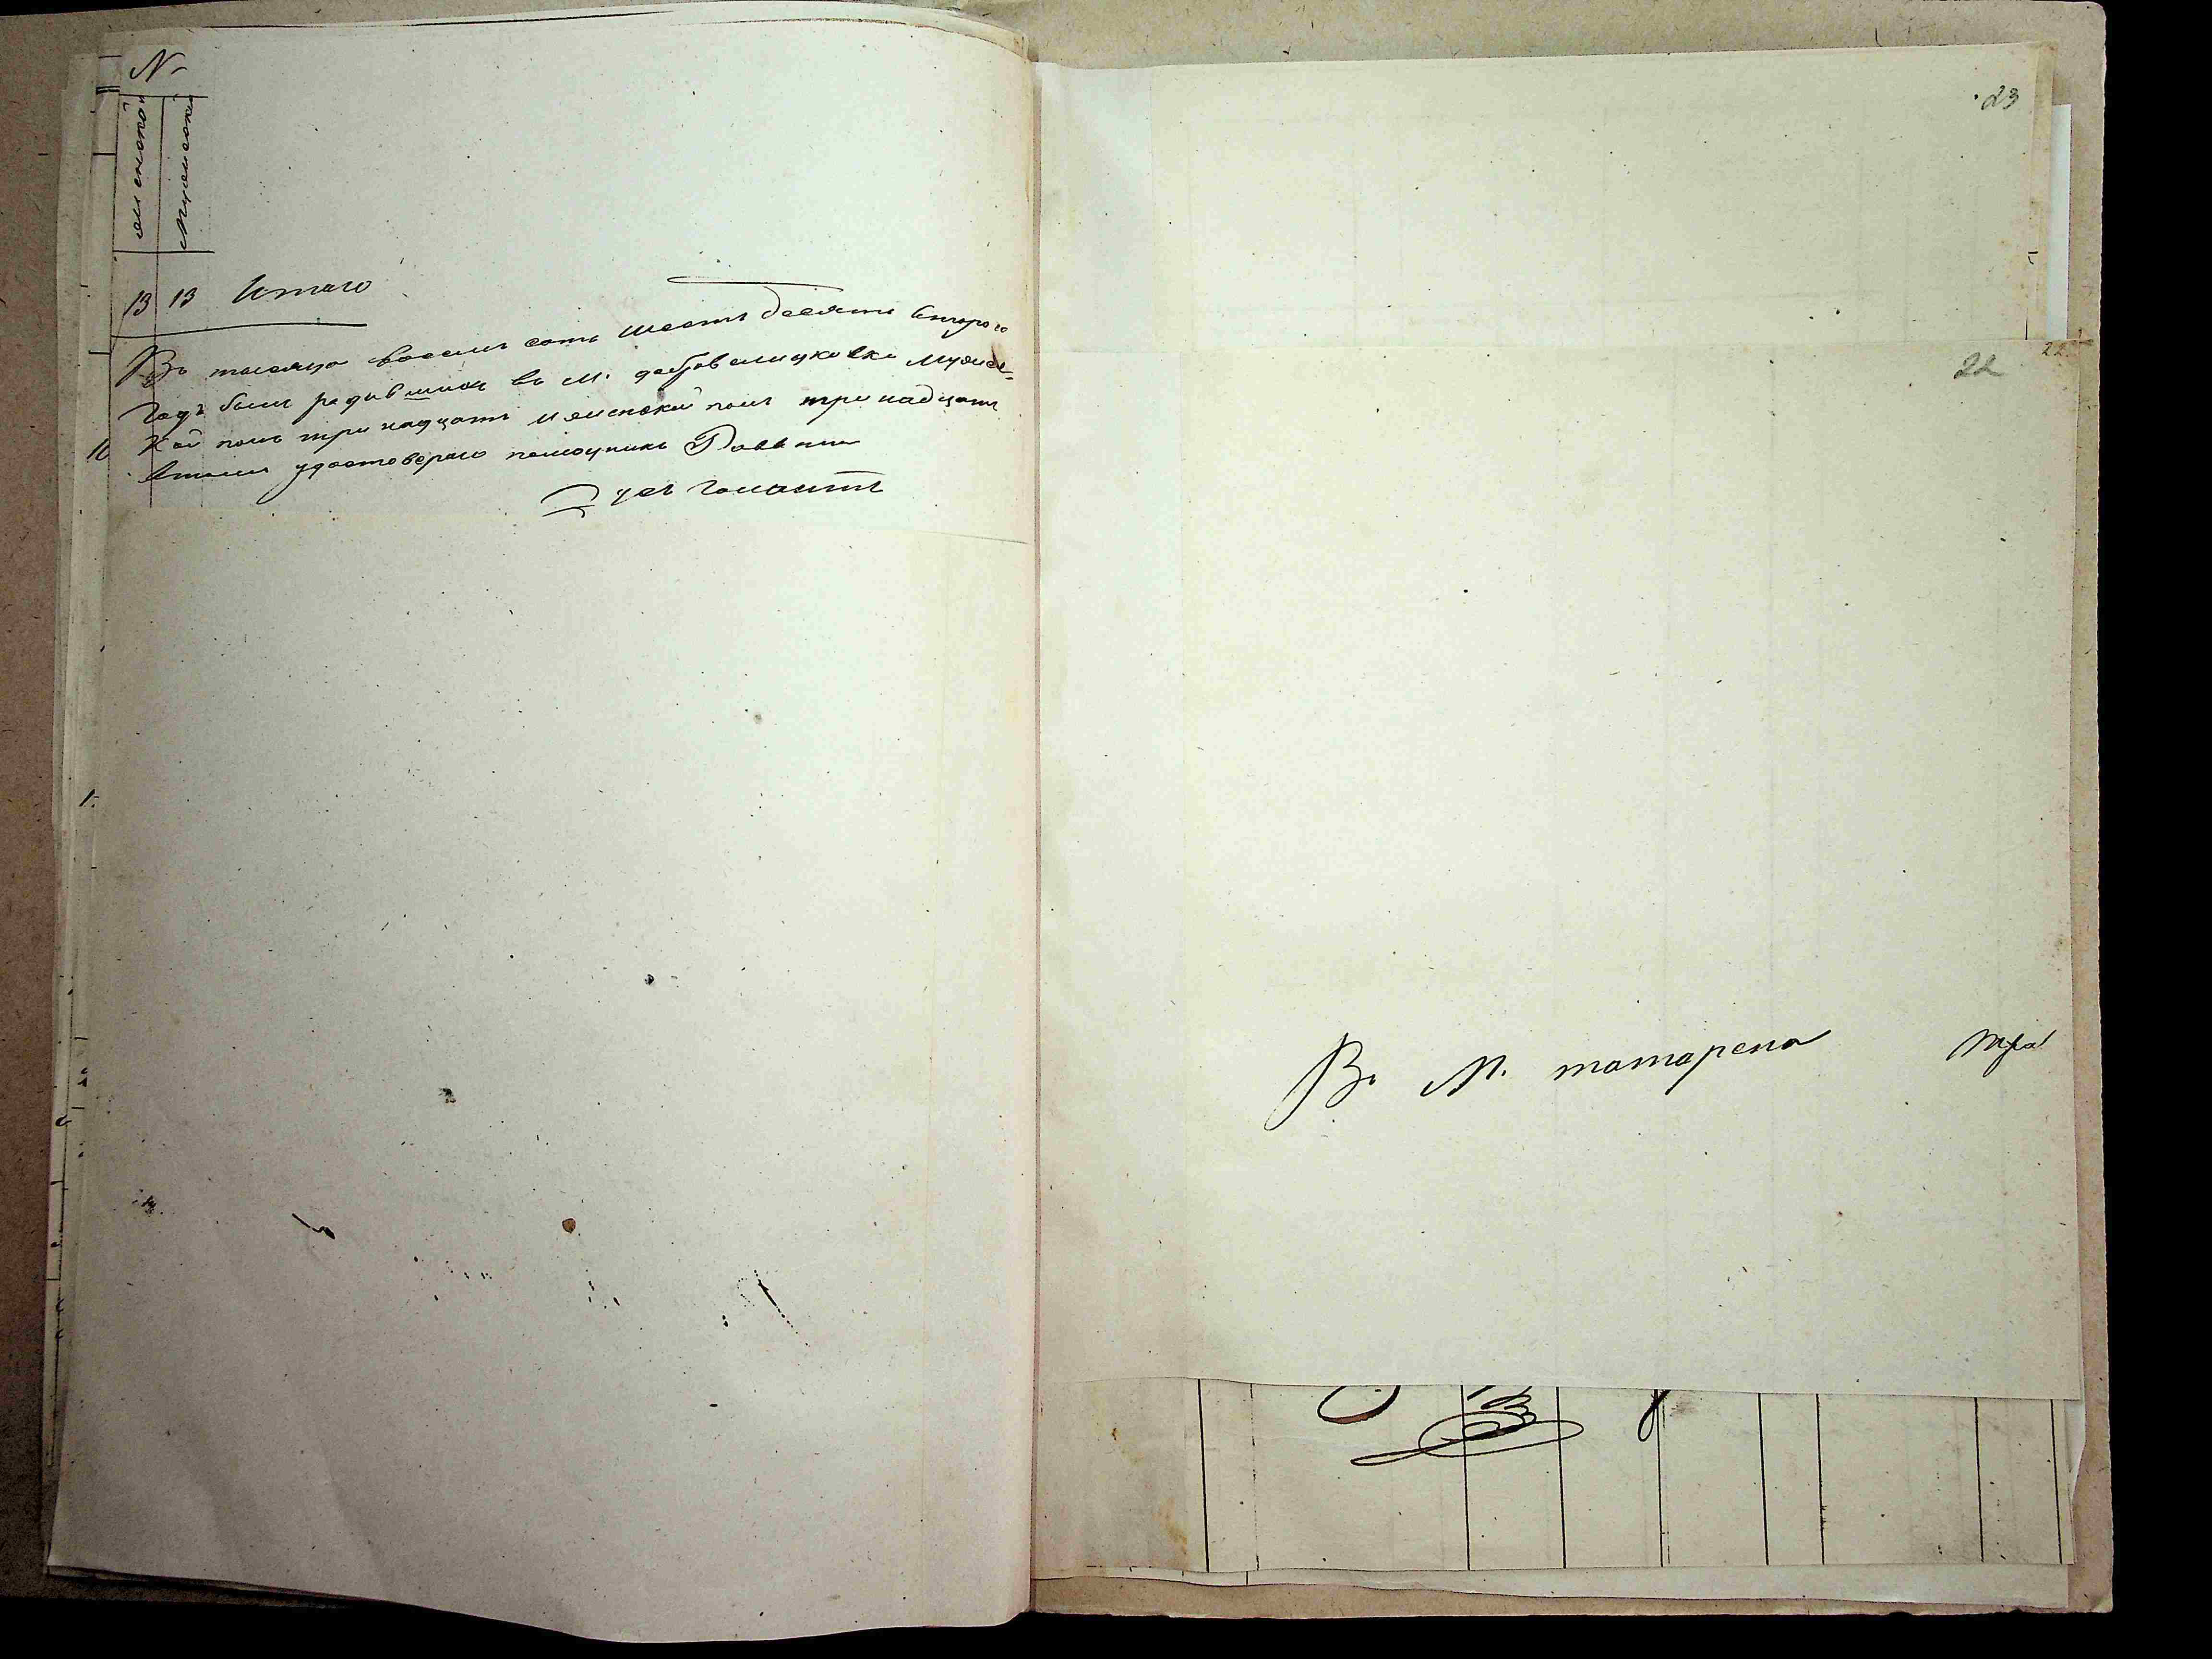 №
женской
Мужеской
13 13 Итаго
Въ тысяча восемь сотъ шестъ десятъ второго
Годъ были родившихъ въ М. добровеличковки Мужес=
Кой полъ тринадцать и женской полъ тринадцать
втомъ удостоверяю помощникъ Раввина
23
22
22
Въ М. татарена